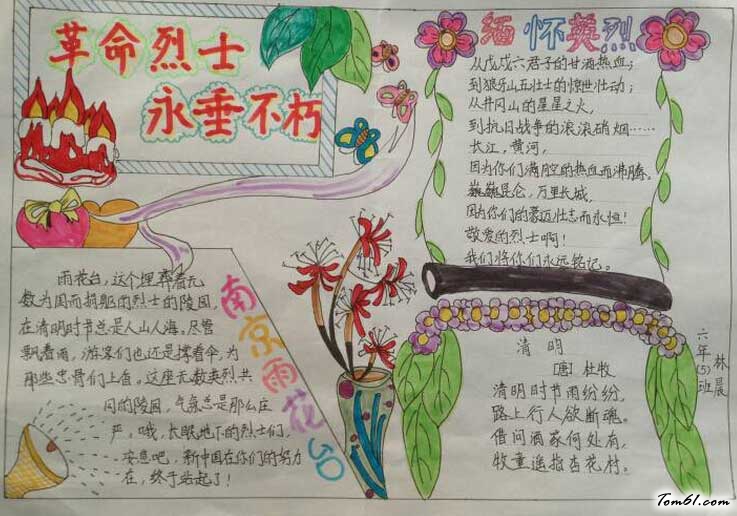 革命烈士
永垂不朽
缅怀英烈
从戊戌六君子的甘洒热血；
到狼牙山五壮士的惊世壮动；
从井冈山的星星之火，
到抗日战争的滚滚硝烟……
长江，黄河，
因为你们满腔的热血而沸腾。
巍巍昆仑，万里长城，
因为你们的豪迈壮志而永恒！
敬爱的烈士啊！
我们将你们永远铭记。
南京雨花台
雨花台，这个埋葬着无
数为国而捐躯的烈士的陵园，
在清明时节总是人山人海，尽管
飘着雨，游客们也还是撑着伞，为
那些忠骨们上香。这座无数英烈共
同的陵园，气氛总是那么庄
严。哦，长眠地下的烈士们，
安息吧，新中国在你们的努力
下，终于站起了！
清明
[唐] 杜牧
清明时节雨纷纷，
路上行人欲断魂。
借问酒家何处有，
牧童遥指杏花村。
六年(5)班
林晨
Tom61.com